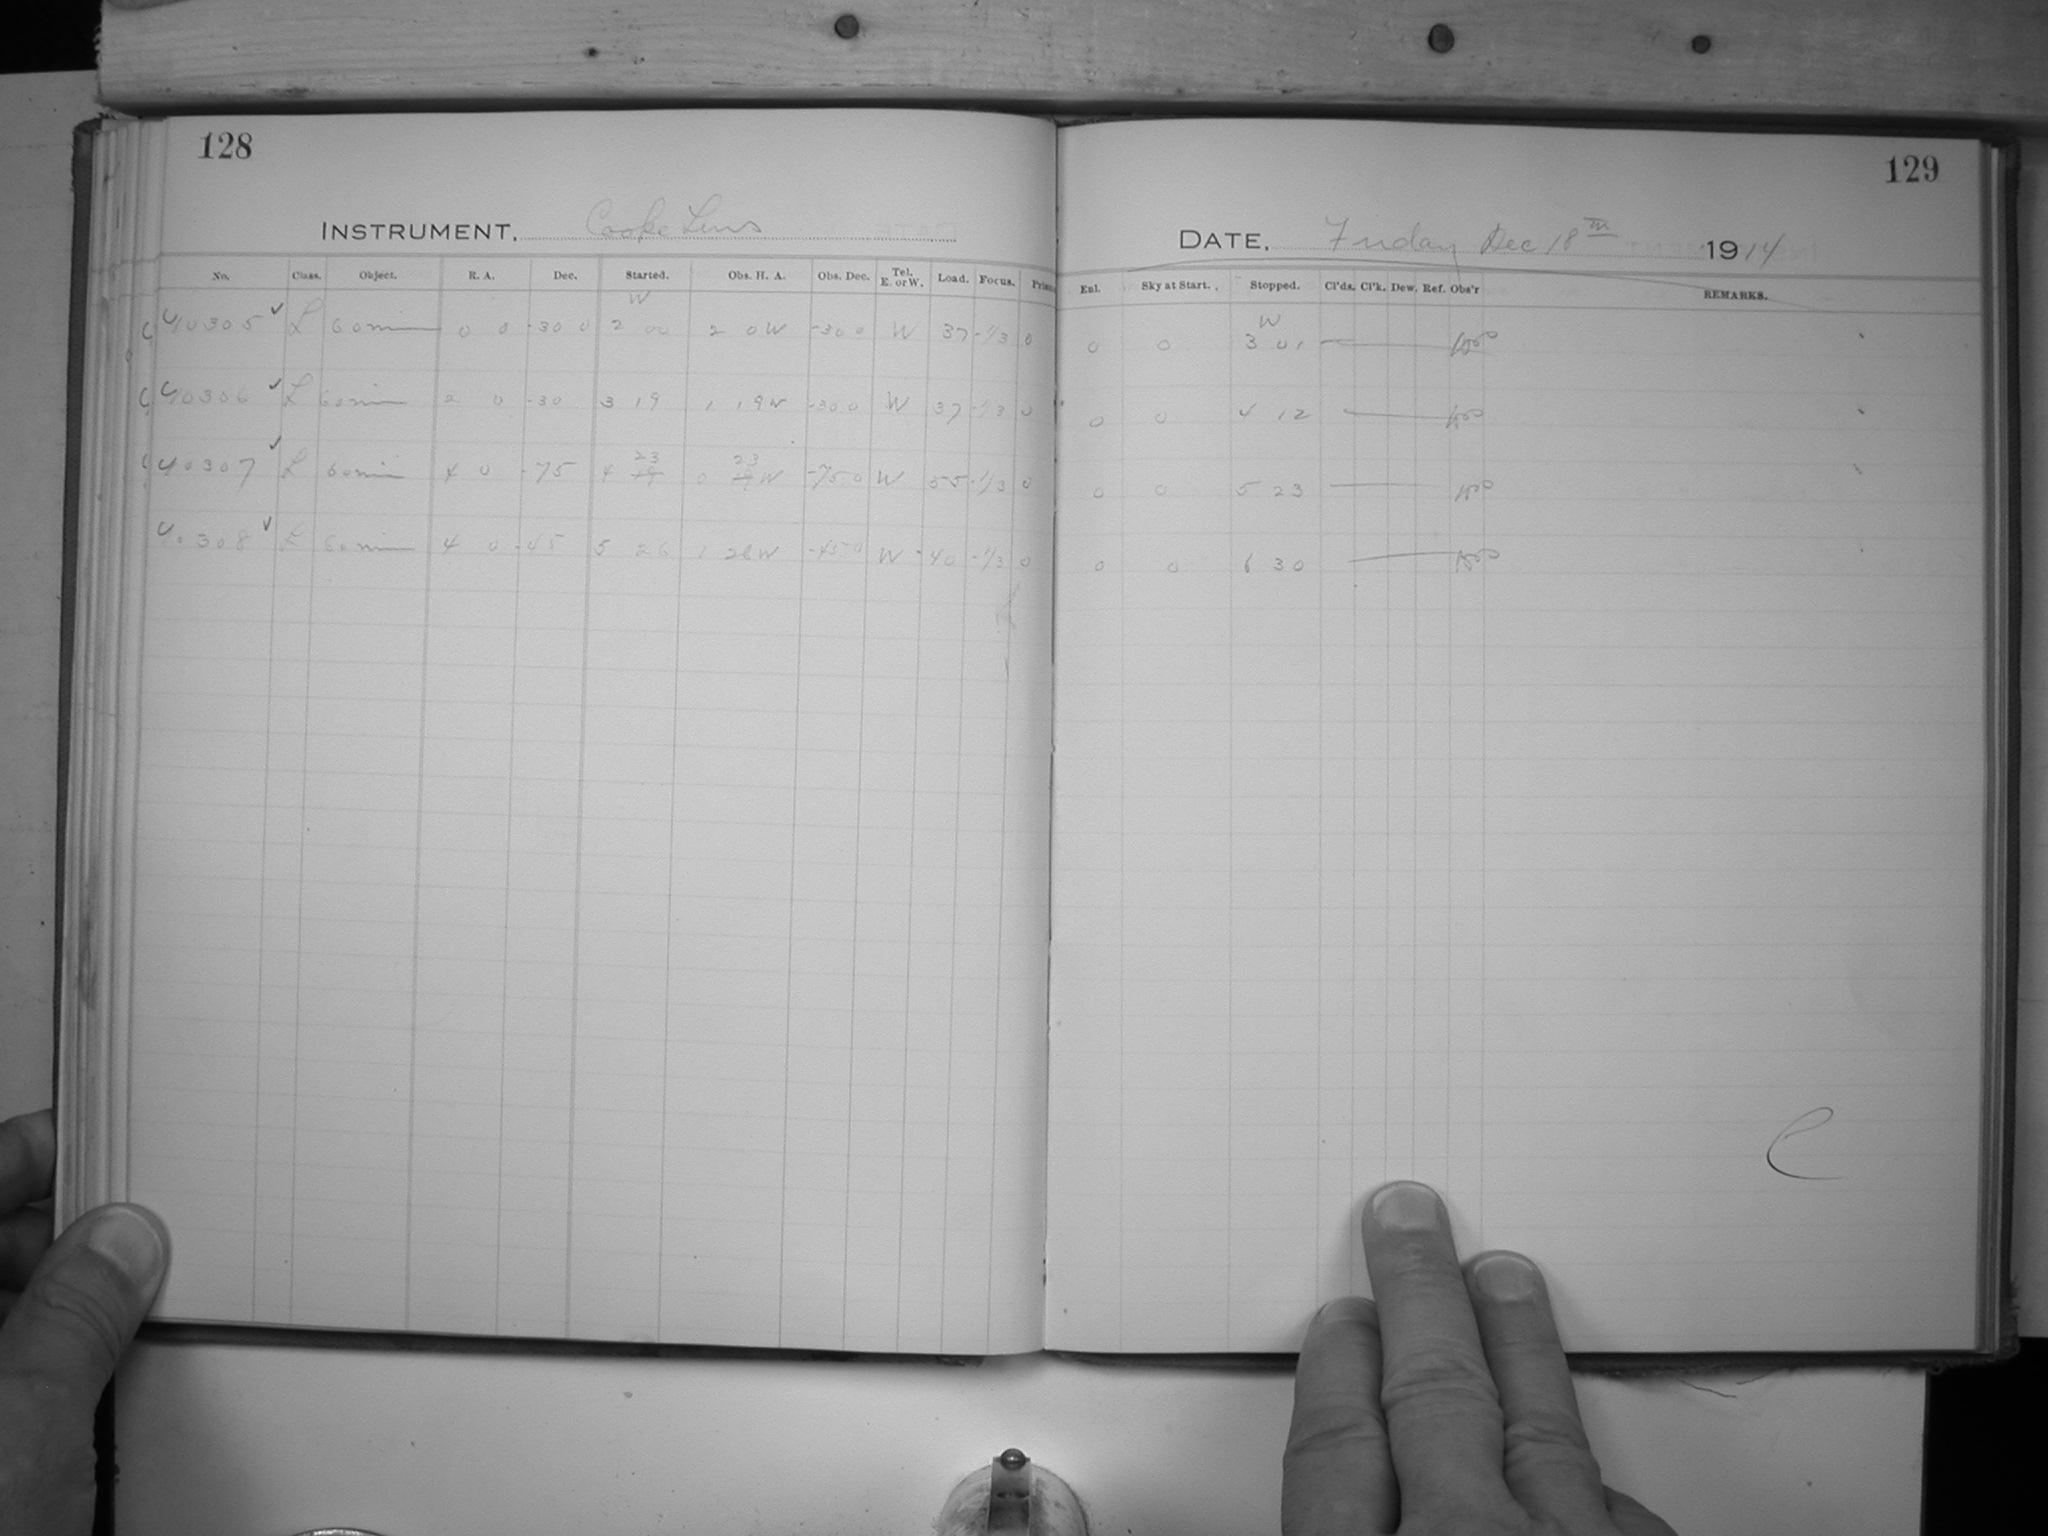 128
INSTRUMENT, Cooke Lens
No. Class. Object. R. A. Dec. Started. Obs. H. A. Obs. Dec. Tel. E. or W. Load. Focus. Prism
W
40305 ✓ L 60 min 0 0 -30 0 2 00 2 0W -30 0 W 37 -1/3 0
40306 ✓ L 60 min 2 0 -30 3 19 1 19W -30 0 W 37 -1/3 0
23 23
40307 ✓ L 60 min 4 0 -75 4 19 0 19W -75 0 W 55 -1/3 0
40308 ✓ L 60 min 4 0 -45 5 26 1 26W -45 0 W 40 -1/3 0
129
DATE, Friday Dec 18th 1914
Enl. Sky at Start. Stopped. Cl'ds. Cl'k. Dew. Ref. Obs'r REMARKS.
W
0 0 3 01
0 0 4 12
0 0 5 23
0 0 6 30
C